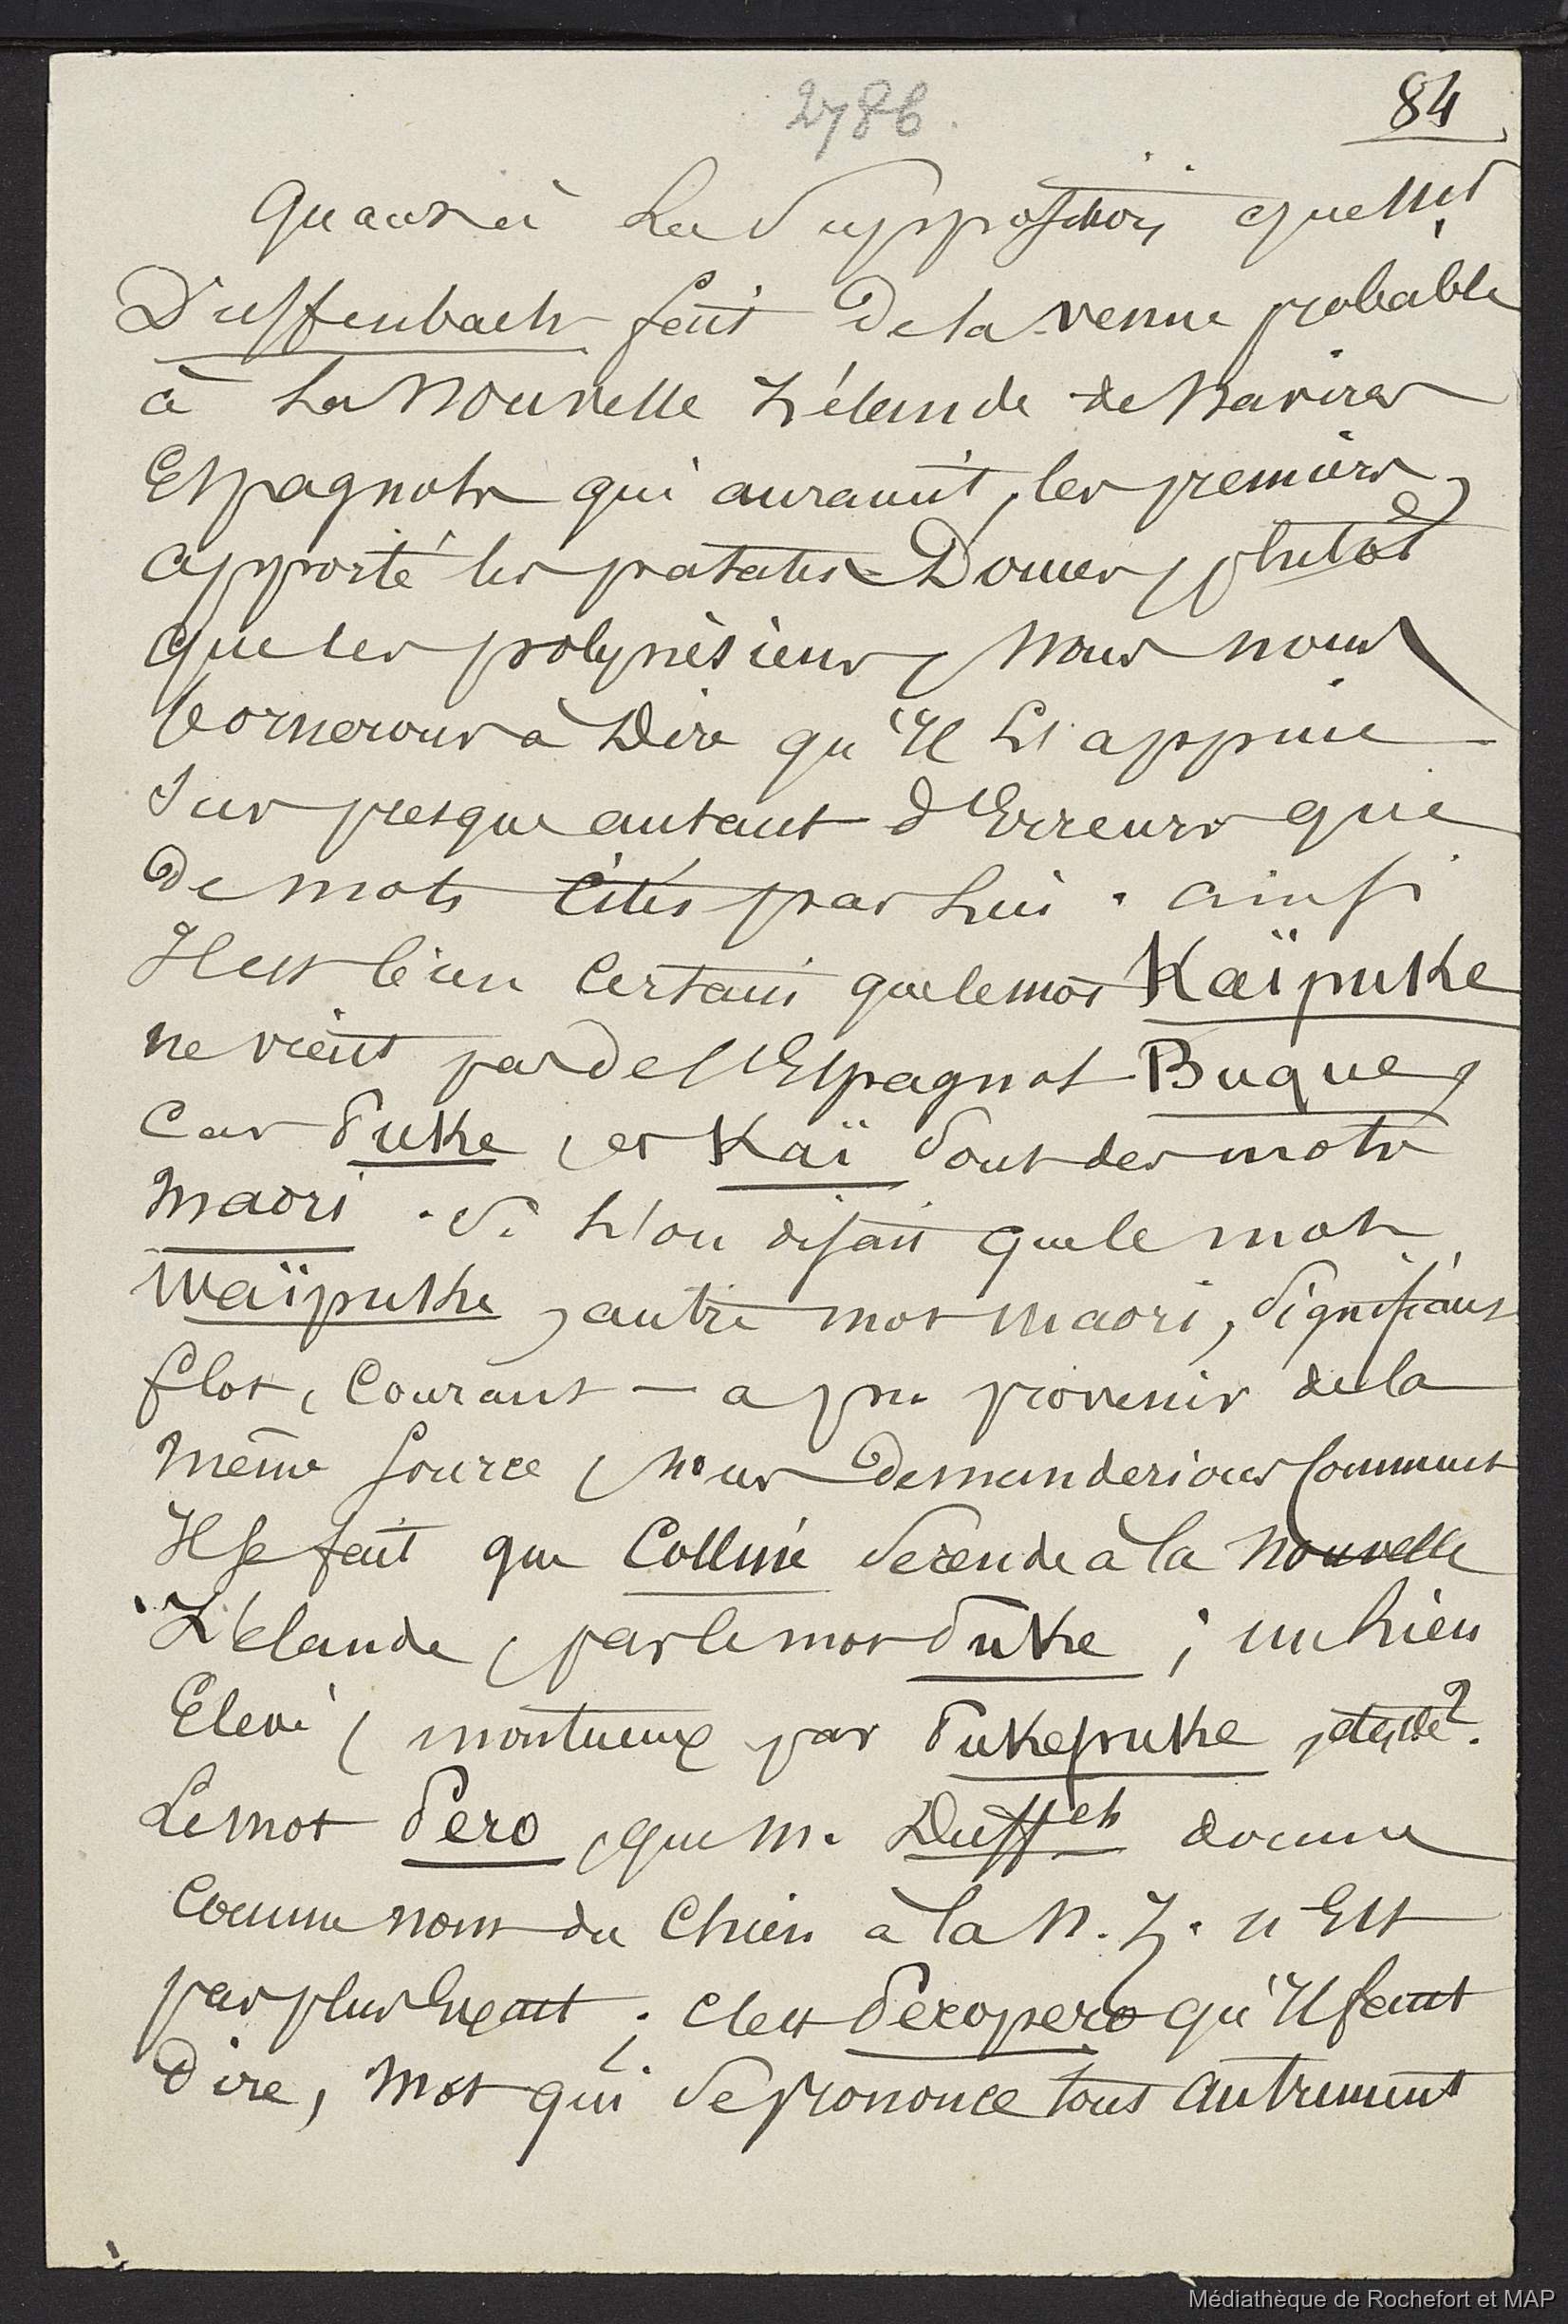 2786.
84
Quant à la supposition que Mr
Dieffenbach fait de la venue probable
à la Nouvelle Zélande de navires
Espagnols qui auraient, les premiers,
apporté les patates Douces, plutôt
que les polynésiens, nous nous
bornerons à Dire qu'Il s'appuie
sur presque autant d'Erreurs que
de mots cités par lui. ainsi
Il est bien certain que le mot Kaïpuke
ne vient pas de l'Espagnol Buque,
Car Puke, et Kaï sont des mots
maori. Si l'on disait que le mot
Waïpuke, autre mot maori, signifiant
flot, courant — a pu provenir de la
même source, nous demanderions comment
Il se fait que Colline se rende à la Nouvelle
Zélande, par le mot Puke ; un lieu
Elevé, montueux par Pukepuke,
Le mot Pero, que M. Dieffch donne
Comme nom du Chien à la N. Z. n'Est
pas plus Exact ; c'est Peropero qu'Il faut
Dire, mot qui se prononce tout autrement
Médiathèque de Rochefort et MAP